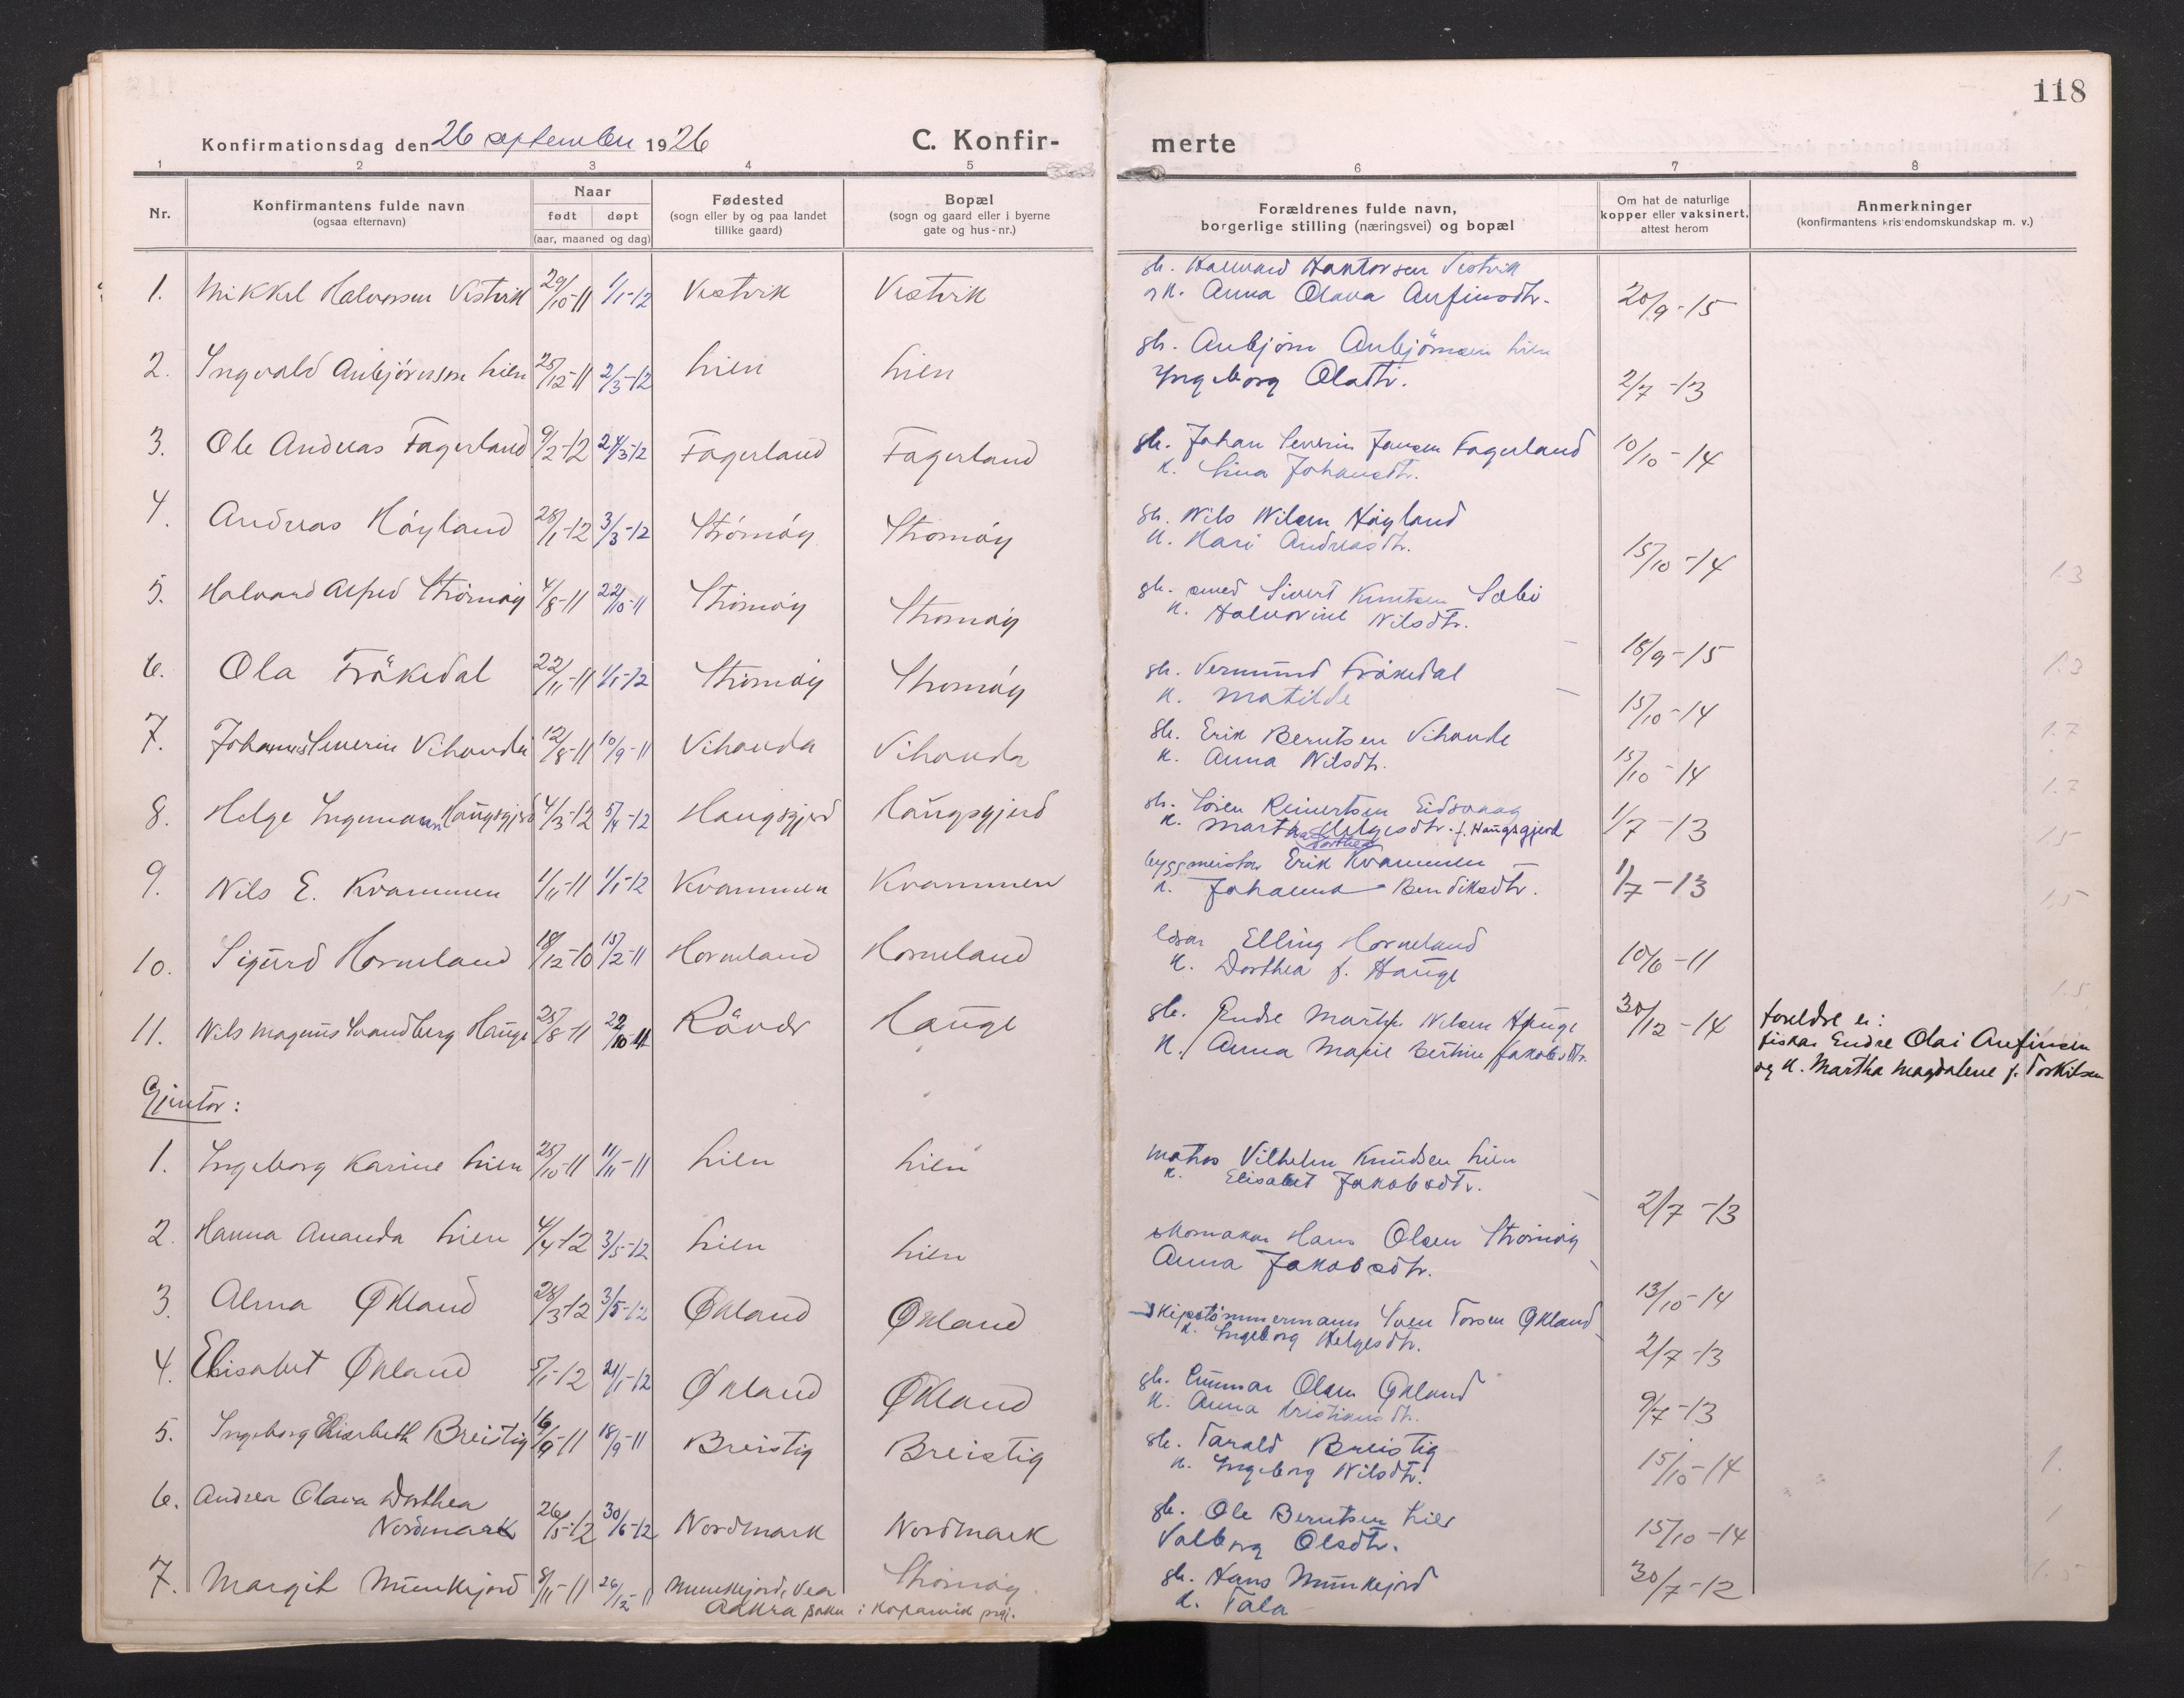 118
Konfirmationsdag den 26 september 1926
C. Konfir-
merte
1 2 3 4 5 6 7 8
Nr.
Konfirmantens fulde navn
(ogsaa efternavn)
Naar
født døpt
(aar, maaned og dag)
Fødested
(sogn eller by og paa landet
tillike gaard)
Bopæl
(sogn og gaard eller i byerne
gate og hus-nr.)
Forældrenes fulde navn,
borgerlige stilling (næringsvei) og bopæl
Om hat de naturlige
kopper eller vaksinert,
attest herom
Anmerkninger
(konfirmantens kristendomskundskap m. v.)
1. Mikkel Halvorsen Vestvik 29/10-11 1/1-12 Vestvik Vestvik
gb. Hallvard Hantorsen Vestvik
og k. Anna Olava Anfinsdtr. 20/9-15
2. Ingvald Anbjörnsen Lien 25/12-11 2/3-12 Lien Lien
gb. Anbjörn Anbjörnsen Lien
Yngeborg Oladtr. 2/7-13
3. Ole Andreas Fagerland 9/2-12 24/3-12 Fagerland Fagerland
gb. Johan Severin Jansen Fagerland 10/10-14
k. Lina Johansdtr.
4. Andreas Höyland 28/1-12 3/3-12 Strömöy Strömöy
gb. Nils Nilsen Höyland
k. Kari Andreasdtr. 15/10-14
5. Halvard Alfred Strömöy 4/8-11 22/10-11 Strömöy Strömöy
gb. smed Sivert Knutsen Sæbö
k. Halvorine Nilsdtr. 18/9-15
6. Ola Fräkedal 22/11-11 1/1-12 Strömöy Strömöy
gb. Vermund Fräkedal
k. Matilde 15/10-14
7. Johannes Severin Vihovda 12/8-11 10/9-11 Vihovda Vihovda
gb. Erik Berntsen Vihovde
k. Anna Nilsdtr. 15/10-14
8. Helge Ingemann Haugsgjerd 4/3-12 5/4-12 Haugsgjerd Haugsgjerd
gb. Sören Reinertsen Eidsvaag
k. Martha Helgesdtr. f. Haugsgjerd 1/7-13
Dorthea
9. Nils E. Kvammen 1/11-11 1/1-12 Kvammen Kvammen
byggmeister Erik Kvammen
k. Johanna Bendiksdtr. 1/7-13
10. Sigurd Horneland 18/12-10 15/2-11 Horneland Horneland
Elling Horneland
k. Dorthea f. Hauge 10/6-11
11. Nils Magnus Svandberg Hauge 25/8-11 22/10-11 Rövær Hauge
gb. Endre Martin Nilsen Hauge 30/12-14
k. Anna Marie Bertine Jakobsdtr.
foreldre er:
fiskar Endre Olai Anfinsen
og k. Martha Magdalene f. Torkilsen
Gjentor:
1. Ingeborg Karine Lien 25/10-11 11/11-11 Lien Lien
matros Vilhelm Knudsen Lien
k. Elisabet Jakobsdtr. 2/7-13
2. Hanna Amanda Lien 4/4-12 3/5-12 Lien Lien
skomakar Hans Olsen Strömöy
Anna Jakobsdtr. 13/10-14
3. Alma Økland 28/3-12 3/5-12 Økland Økland
skipstömmermann Sven Torsen Økland
k. Ingeborg Helgesdtr. 2/7-13
4. Elisabet Økland 5/1-12 21/1-12 Økland Økland
gb. Gunnar Olsen Økland
k. Anna Kristiansdtr. 9/7-13
5. Ingeborg Elisabeth Breistig 16/9-11 18/9-11 Breistig Breistig
gb. Tarald Breistig
k. Yngeborg Nilsdtr. 15/10-14
6. Andrea Olava Dorthea
Nordmark 26/5-12 30/6-12 Nordmark Nordmark
gb. Ole Berntsen Lier
Valborg Olsdtr. 15/10-14
7. Margit Munkejord 8/11-11 26/12-11 Munkejord, Vea Strömöy
Aakra sokn i Kopervik prgj.
gb. Hans Munkejord 30/7-12
k. Tala